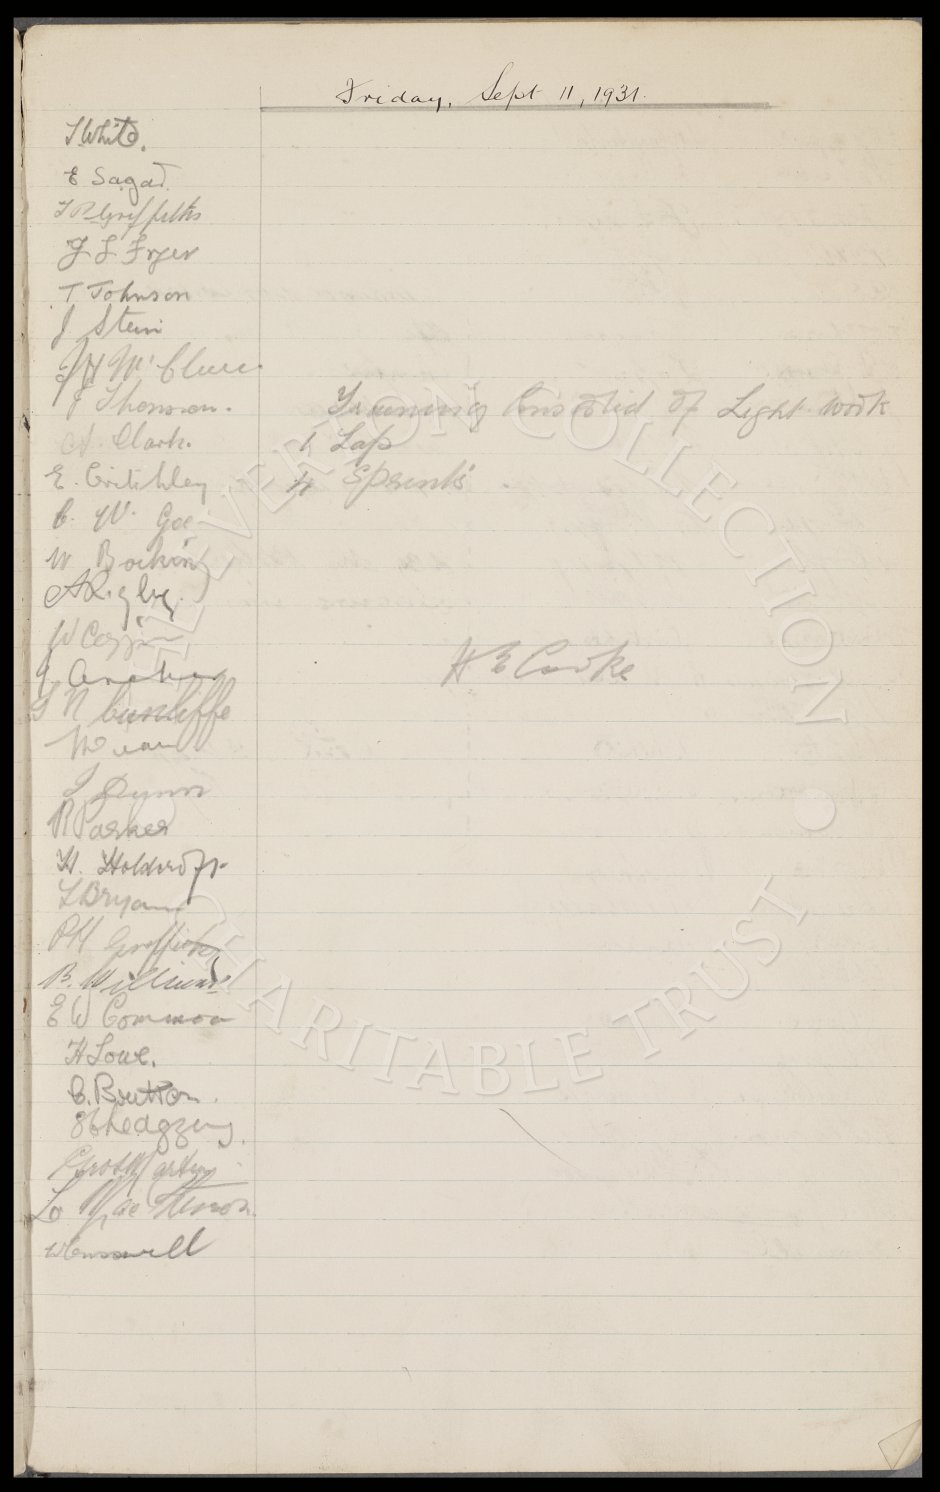 Friday, Sept 11, 1931.
T White.
E Sagar
T P Griffiths
J L Fryer
T Johnson
J Stein
J H McClure
J Thomson.
A. Clark.
E. Critchley
C. W. Gee
W Bocking
A Rigby.
W Coggins
J Archer
J N Cunliffe
W Dean
J Dunn
R Parker
H. Holdcroft
L Bryan
P H Griffiths
B. Williams
E W Common
H Lowe.
C. Britton.
Training Consisted of Light work
1 Lap
4 Sprints.
H E Cooke
THE EVERTON COLLECTION • CHARITABLE TRUST •
W Cresswell